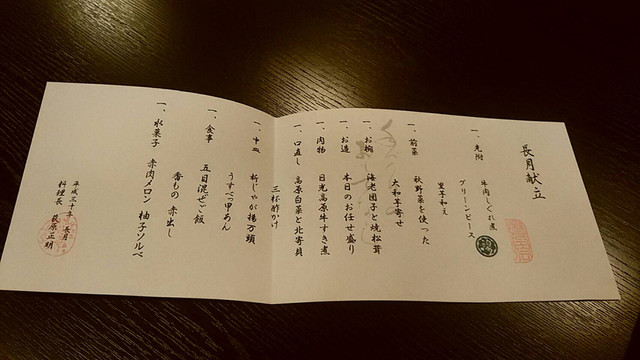 長月献立
一、先附
牛肉しぐれ煮
グリーンピース
一、前菜
秋野菜を使った
里芋和え
大和芋寄せ
一、お椀
海老団子と焼松茸
一、お造
本日のお任せ盛り
一、肉物
日光高原牛すき煮
一、口直し
高原白菜と北寄貝
三杯酢かけ
一、中皿
新じゃが揚万頭
うすべっ甲あん
一、食事
五目混ぜご飯
香もの 赤出し
一、水菓子
赤肉メロン 柚子ソルベ
平成三十年 長月
料理長 荻原正明